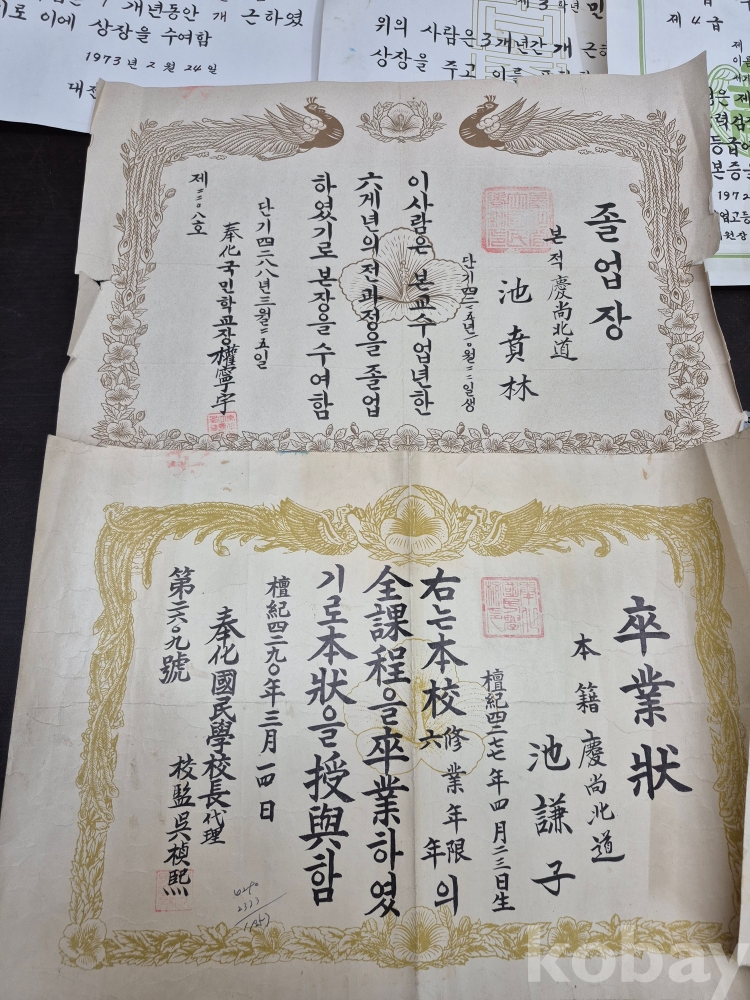 개년동안 개 근하였
로 이에 상장을 수여함
1973년 2월 24일
대전
제 3 학년
위의 사람은 3개년간 개 근하
상장을 주고 이를
제 4 급
1972
졸업장
본적 慶尚北道
池賁林
단기四二二五년一〇월二二일생
이사람은 본교수업년한
六게년의 전과정을 졸업
하였기로 본장을 수여함
단기四二八八년三월二五일
奉化국민학교장 權寧宇
제二二〇八호
卒業狀
本籍 慶尚北道
池謙子
檀紀四二七七年四月二三日生
右는 本校 修業年限 六年의
全課程을 卒業하였
기로 本狀을 授與함
檀紀四二九〇年三月一四日
奉化國民學校長代理
校監 吳楨熙
第二六〇九號
4290
2333
1957
kobay